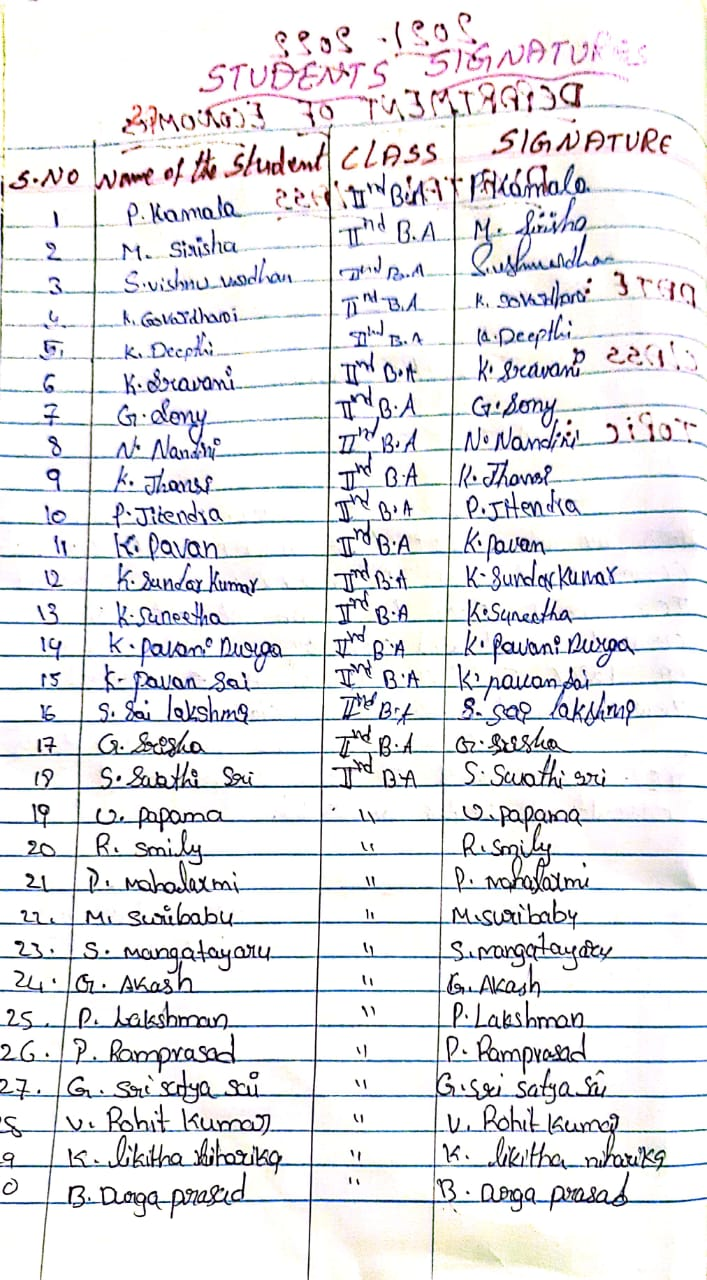 2021-2022
STUDENTS SIGNATURES
DEPARTMENT OF ECONOMICS
S.NO Name of the Student CLASS SIGNATURE
1 P. Kamala IInd B.A P. Kamala
2 M. Sirisha IInd B.A M. Sirisha
3 S. vishnu vardhan IInd B.A
4 K. Govardhani IInd B.A K. Govardhani DATE
5. K. Deepthi IInd B.A K. Deepthi
6 K. Sravani IInd B.A K. Sravani CLASS
7 G. Sony IInd B.A G. Sony
8 N. Nandini IInd B.A N. Nandini TOPIC
9 K. Jhansi IInd B.A K. Jhansi
10 P. Jitendra IInd B.A P. Jitendra
11 K. Pavan IInd B.A K. pavan
12 K. Sundar Kumar IInd B.A K. Sundar Kumar
13 K. Suneetha IInd B.A K. Suneetha
14 K. pavani Durga IInd B.A K. pavani Durga
15 K. pavan Sai IInd B.A K. pavan Sai
16 S. Sai lakshmi IInd B.A S. Sai lakshmi
17 G. Sresha IInd B.A G. Sresha
18 S. Swathi Sri IInd B.A S. Swathi sri
19 V. papama " V. papama
20 R. smily " R. smily
21 P. Mahalaxmi " P. Mahalaxmi
22. M. suribabu " M. suribaby
23. S. mangatayaru " S. mangatayaru
24. G. AKash " G. AKash
25. P. Lakshman " P. Lakshman
26. P. Ramprasad " P. Ramprasad
27. G. sri satya sai " G. sri satya sai
8 V. Rohit Kumar " V. Rohit Kumar
9 K. likitha niharika " K. likitha niharika
0 B. Durga prasad " B. Durga prasad